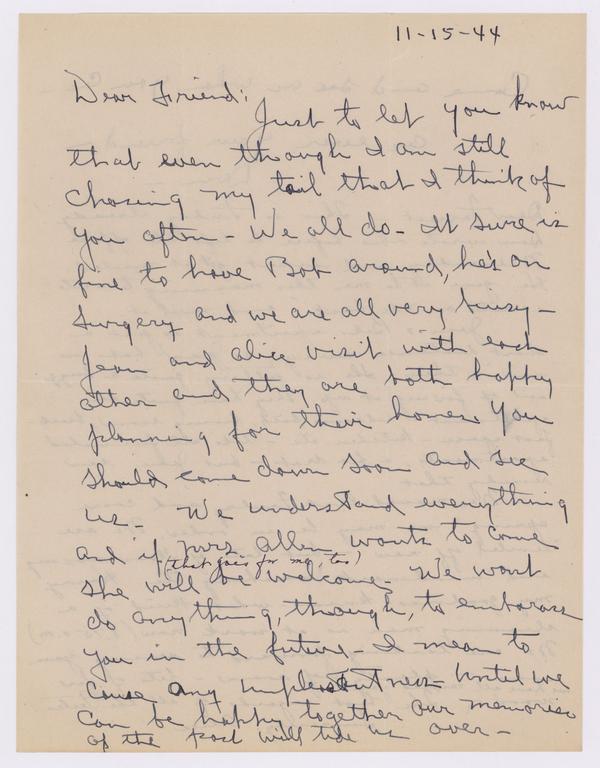 11-15-44
Dear Friend:
Just to let you know
that even though I am still
chasing my tail that I think of
you often - We all do - It sure is
fine to have Bob around, he's on
surgery and we are all very busy -
Jean and Alice visit with each
other and they are both happy
planning for their homes You
should come down soon and see
us - We understand everything
and if Mrs Allen wants to come
(that goes for me, too)
she will be welcome - We wont
do anything, though, to embarass
you in the future - I mean to
cause any unpleasantness - Until we
can be happy together our memories
of the past will tide us over -